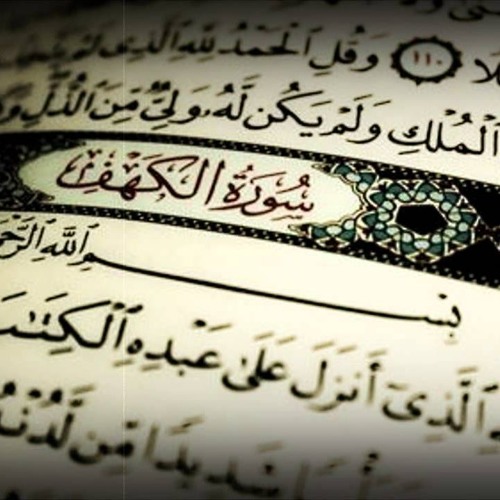 لا ۝١١٠ وَقُلِ ٱلْحَمْدُ لِلَّهِ ٱلَّذِى لَمْ
ٱلْمُلْكِ وَلَمْ يَكُن لَّهُۥ وَلِىٌّ مِّنَ ٱلذُّلِّ
سُورَةُ الكَهْفِ
بِسْمِ ٱللَّهِ ٱلرَّحْمَ
ٱلَّذِىٓ أَنزَلَ عَلَىٰ عَبْدِهِ ٱلْكِتَٰبَ
شَدِيدًا مِّن لَّدُنْهُ